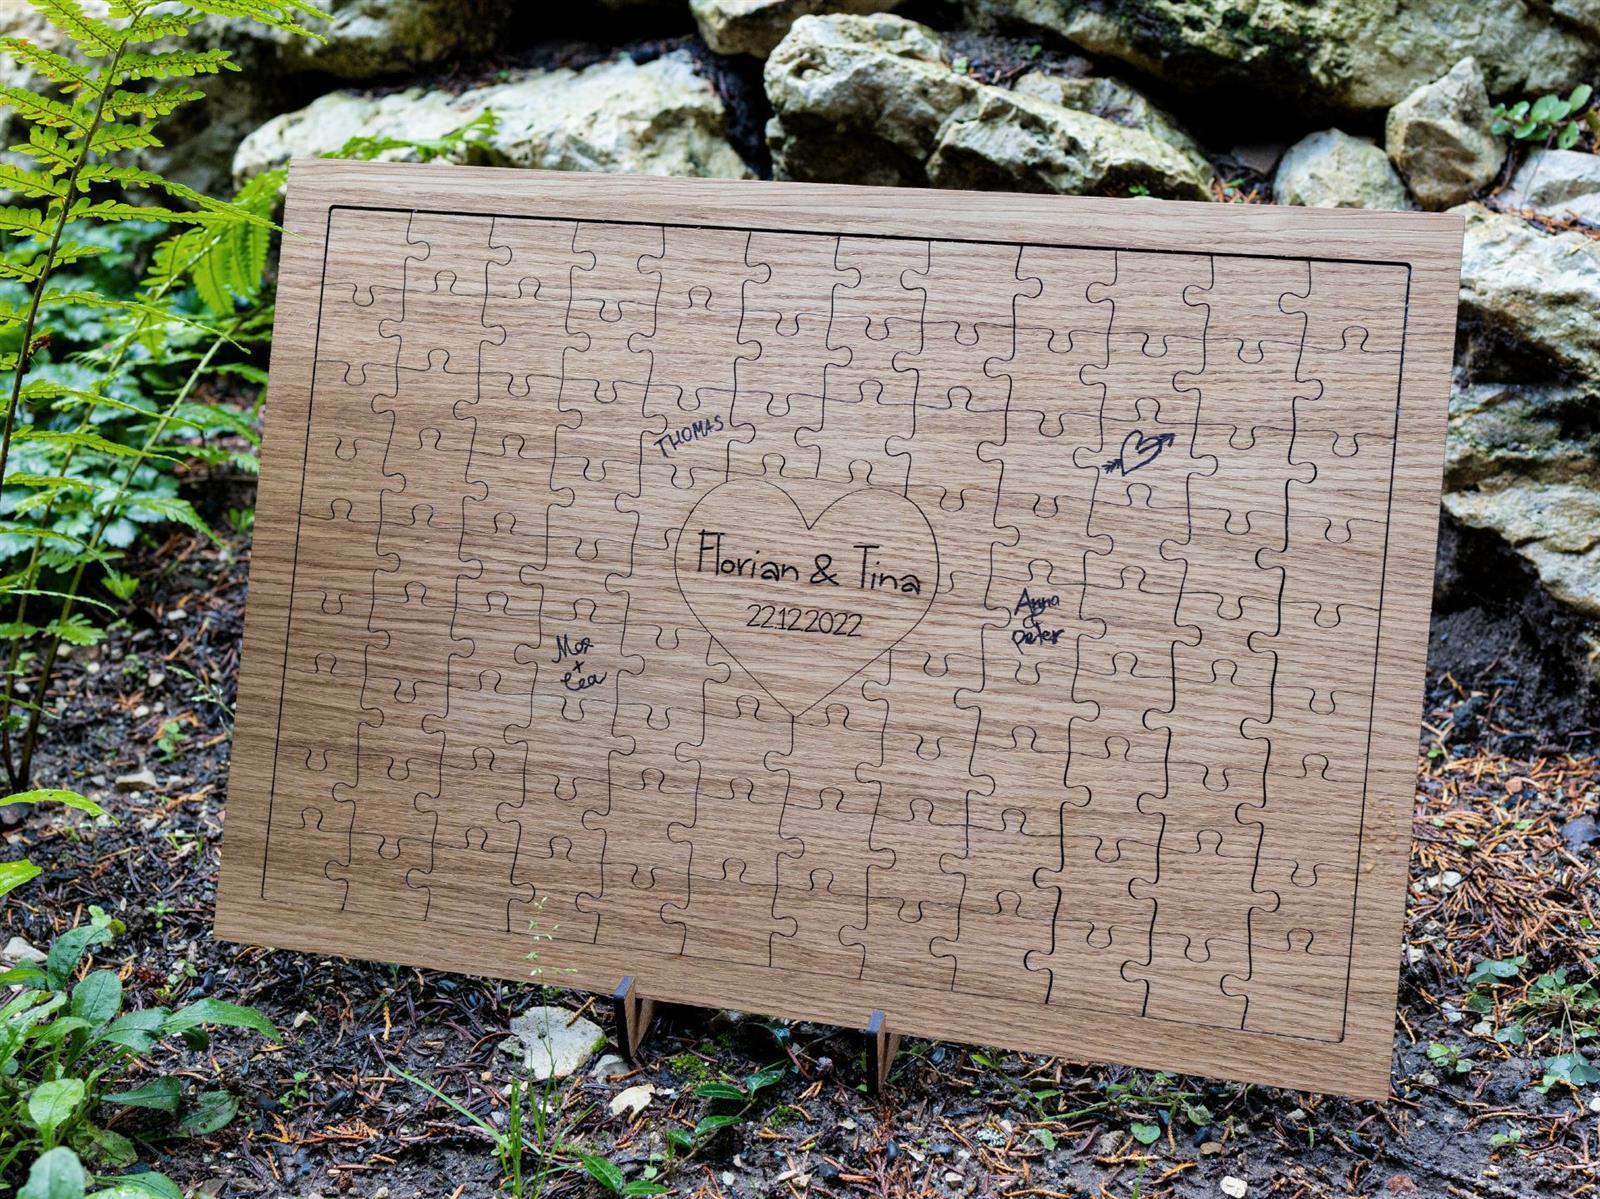 THOMAS
Florian & Tina
22.12.2022
Anna
&
Peter
Max
+
Lea